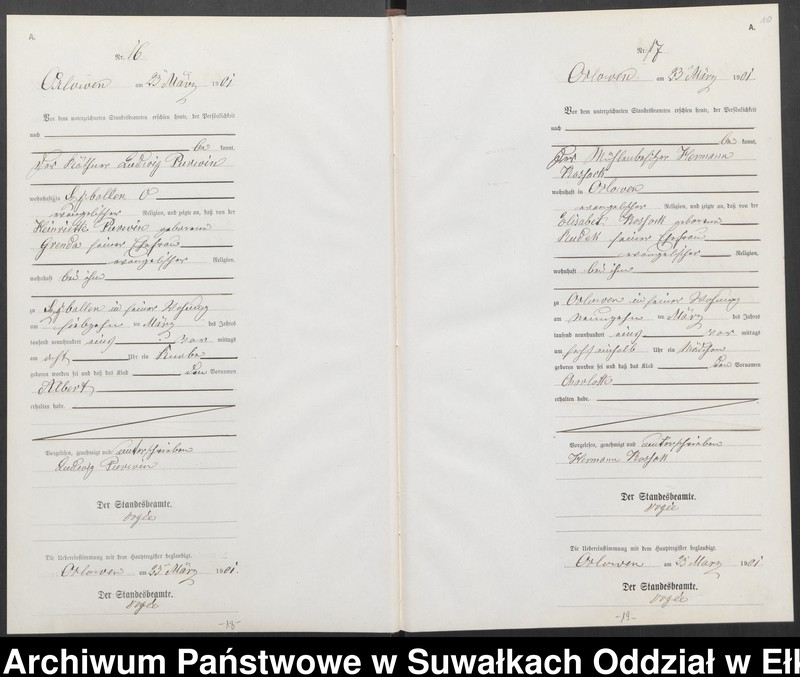 A.
Nr. 16
Orlowen am 23ten März 1901
Vor dem unterzeichneten Standesbeamten erschien heute, der Persönlichkeit
nach
be kannt,
Der Käthner Ludwig
wohnhaft in
evangelischer Religion, und zeigte an, daß von der
Henriette geborenen
Grenda seiner Ehefrau
evangelischer Religion,
wohnhaft bei ihm
zu in seiner Wohnung
am siebzehn ten März des Jahres
tausend neunhundert eins vor mittags
um acht Uhr ein Knabe
geboren worden sei und daß das Kind den Vornamen
Albert
erhalten habe.
Vorgelesen, genehmigt und unterschrieben
Ludwig
Der Standesbeamte.
Die Uebereinstimmung mit dem Hauptregister beglaubigt.
Orlowen am 23ten März 1901.
Der Standesbeamte.
-18-
A.
Nr. 17
Orlowen am 23ten März 1901.
Vor dem unterzeichneten Standesbeamten erschien heute, der Persönlichkeit
nach
be kannt,
Der Mühlenbesitzer Hermann
Kossack
wohnhaft in Orlowen
evangelischer Religion, und zeigte an, daß von der
Elisabet Kossack geborenen
seiner Ehefrau
evangelischer Religion,
wohnhaft bei ihm
zu Orlowen in seiner Wohnung
am neunzehn ten März des Jahres
tausend neunhundert eins vor mittags
um Uhr ein Mädchen
geboren worden sei und daß das Kind den Vornamen
Charlotte
erhalten habe.
Vorgelesen, genehmigt und unterschrieben
Hermann Kossack
Der Standesbeamte.
Die Uebereinstimmung mit dem Hauptregister beglaubigt.
Orlowen am 23ten März 1901.
Der Standesbeamte.
-19-
Archiwum Państwowe w Suwałkach Oddział w Ełk